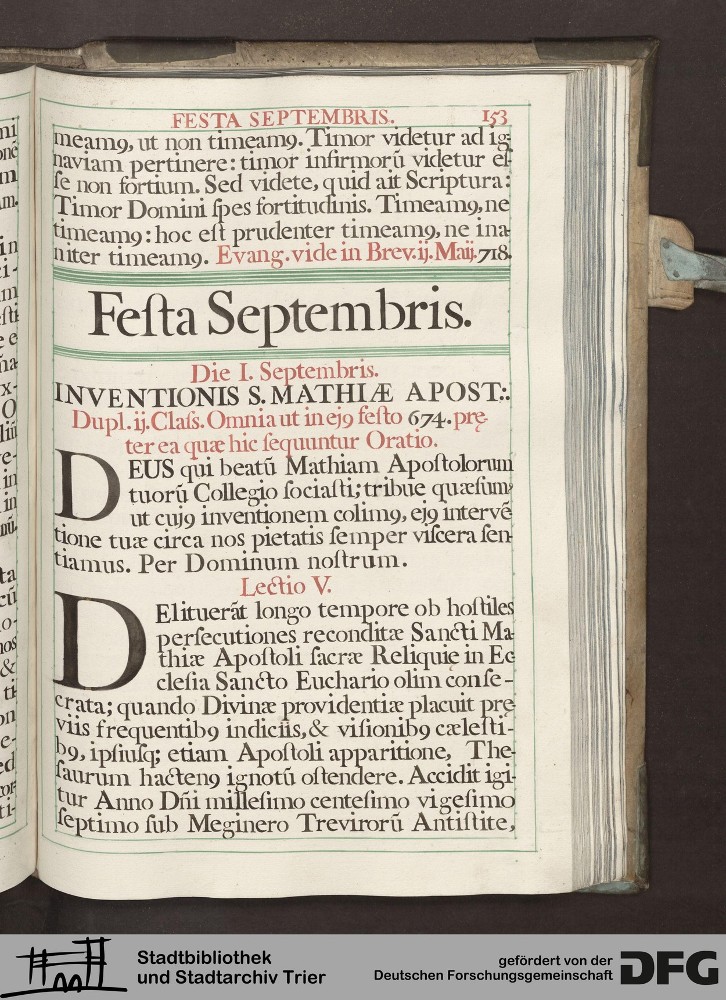 FESTA SEPTEMBRIS. 153
meamꝯ, ut non timeamꝯ. Timor videtur ad ig-
naviam pertinere: timor infirmorũ videtur eſ-
ſe non fortium. Sed videte, quid ait Scriptura:
Timor Domini ſpes fortitudinis. Timeamꝯ, ne
timeamꝯ: hoc eſt prudenter timeamꝯ, ne ina-
niter timeamꝯ. Evang. vide in Brev. ij. Maij. 718.
Feſta Septembris.
Die I. Septembris.
INVENTIONIS S. MATHIÆ APOST:.
Dupl. ij. Claſs. Omnia ut in ejꝯ feſto 674. prę-
ter ea quæ hic ſequuntur Oratio.
DEUS qui beatũ Mathiam Apoſtolorum
tuorũ Collegio ſociaſti; tribue quæſum,
ut cujꝯ inventionem colimꝯ, ejꝯ intervẽ-
tione tuæ circa nos pietatis ſemper viſcera ſen-
tiamus. Per Dominum noſtrum.
Lectio V.
DElituerãt longo tempore ob hoſtiles
perſecutiones reconditæ Sancti Ma-
thiæ Apoſtoli ſacræ Reliquię in Ec-
cleſia Sancto Euchario olim conſe-
crata; quando Divinæ providentiæ placuit prę-
viis frequentibꝯ indiciis, & viſionibꝯ cæleſti-
bꝯ, ipſiuſq; etiam Apoſtoli apparitione, The-
ſaurum hactenꝯ ignotũ oſtendere. Accidit igi-
tur Anno Dñi milleſimo centeſimo vigeſimo
ſeptimo ſub Meginero Trevirorũ Antiſtite,
Stadtbibliothek
und Stadtarchiv Trier
gefördert von der
Deutschen Forschungsgemeinschaft
DFG